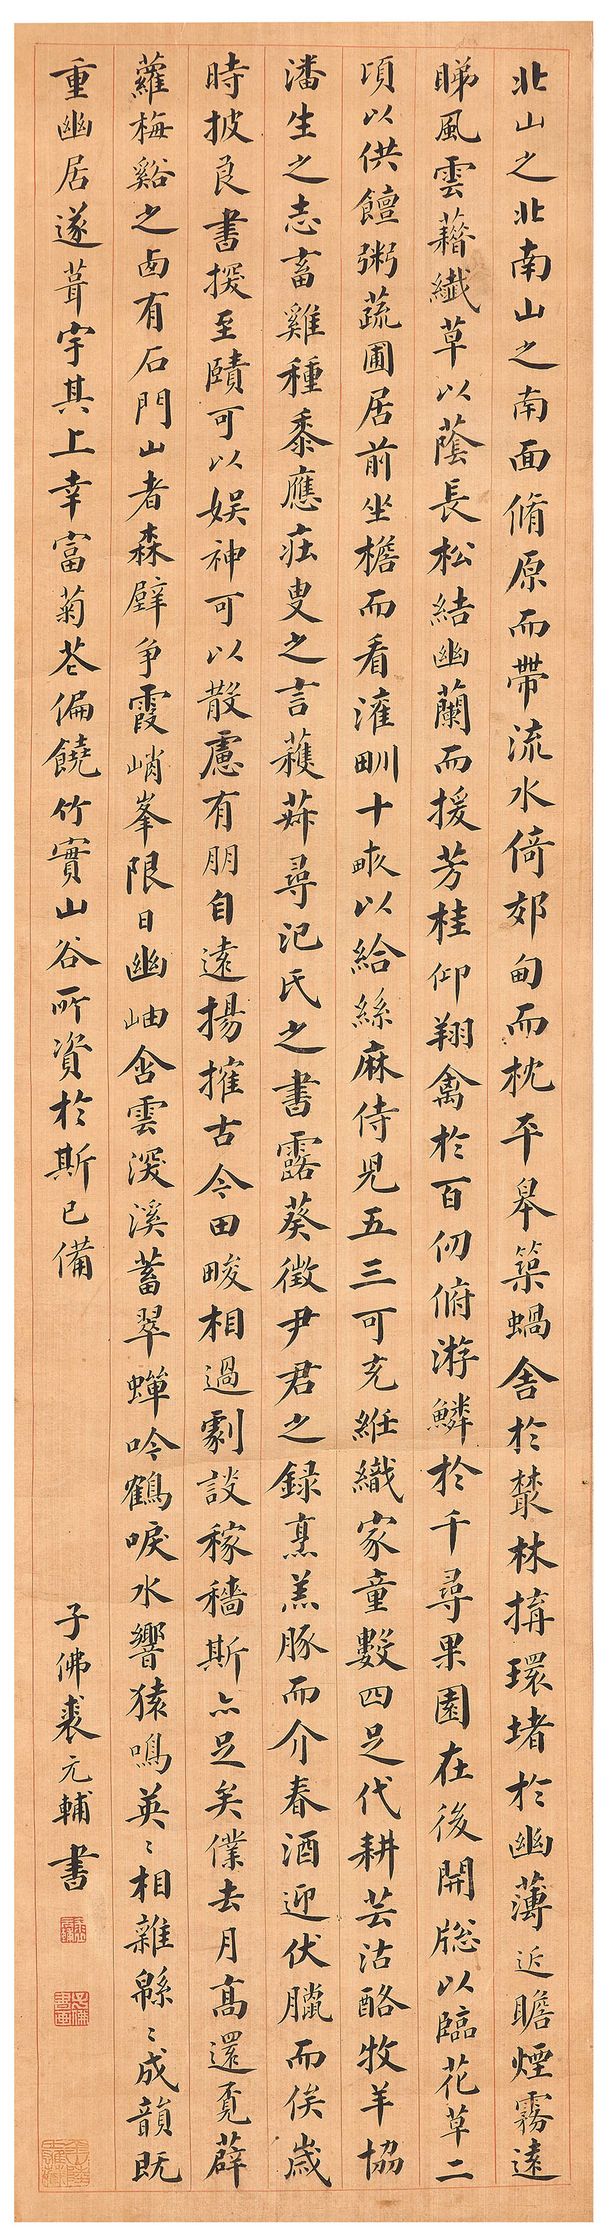 北山之北南山之南面脩原而帶流水倚郊甸而枕平皋築蝸舍於藂林搆環堵於幽薄近瞻煙霧遠
睇風雲藉纖草以蔭長松結幽蘭而援芳桂仰翔禽於百仞俯游鱗於千尋果園在後開牕以臨花草二
頃以供饘粥蔬圃居前坐檐而看灌甽十畞以給絲麻侍児五三可充紝織家童數四足代耕芸沽酪牧羊協
潘生之志畜雞種黍應莊叟之言穫菽尋氾氏之書露葵徵尹君之録烹羔豚而介春酒迎伏臘而俟歳
時披良書探至賾可以娛神可以散慮有朋自遠揚搉古今田畯相過劇談稼穡斯亦足矣僕去月髙還覔薜
蘿梅谿之西有石門山者森壁争霞峭峯限日幽岫含雲深溪蓄翠蟬吟鶴唳水響猿鳴英〻相雜緜〻成韻既
重幽居遂葺宇其上幸富菊苍偏饒竹實山谷所資於斯已備
子佛裘元輔書